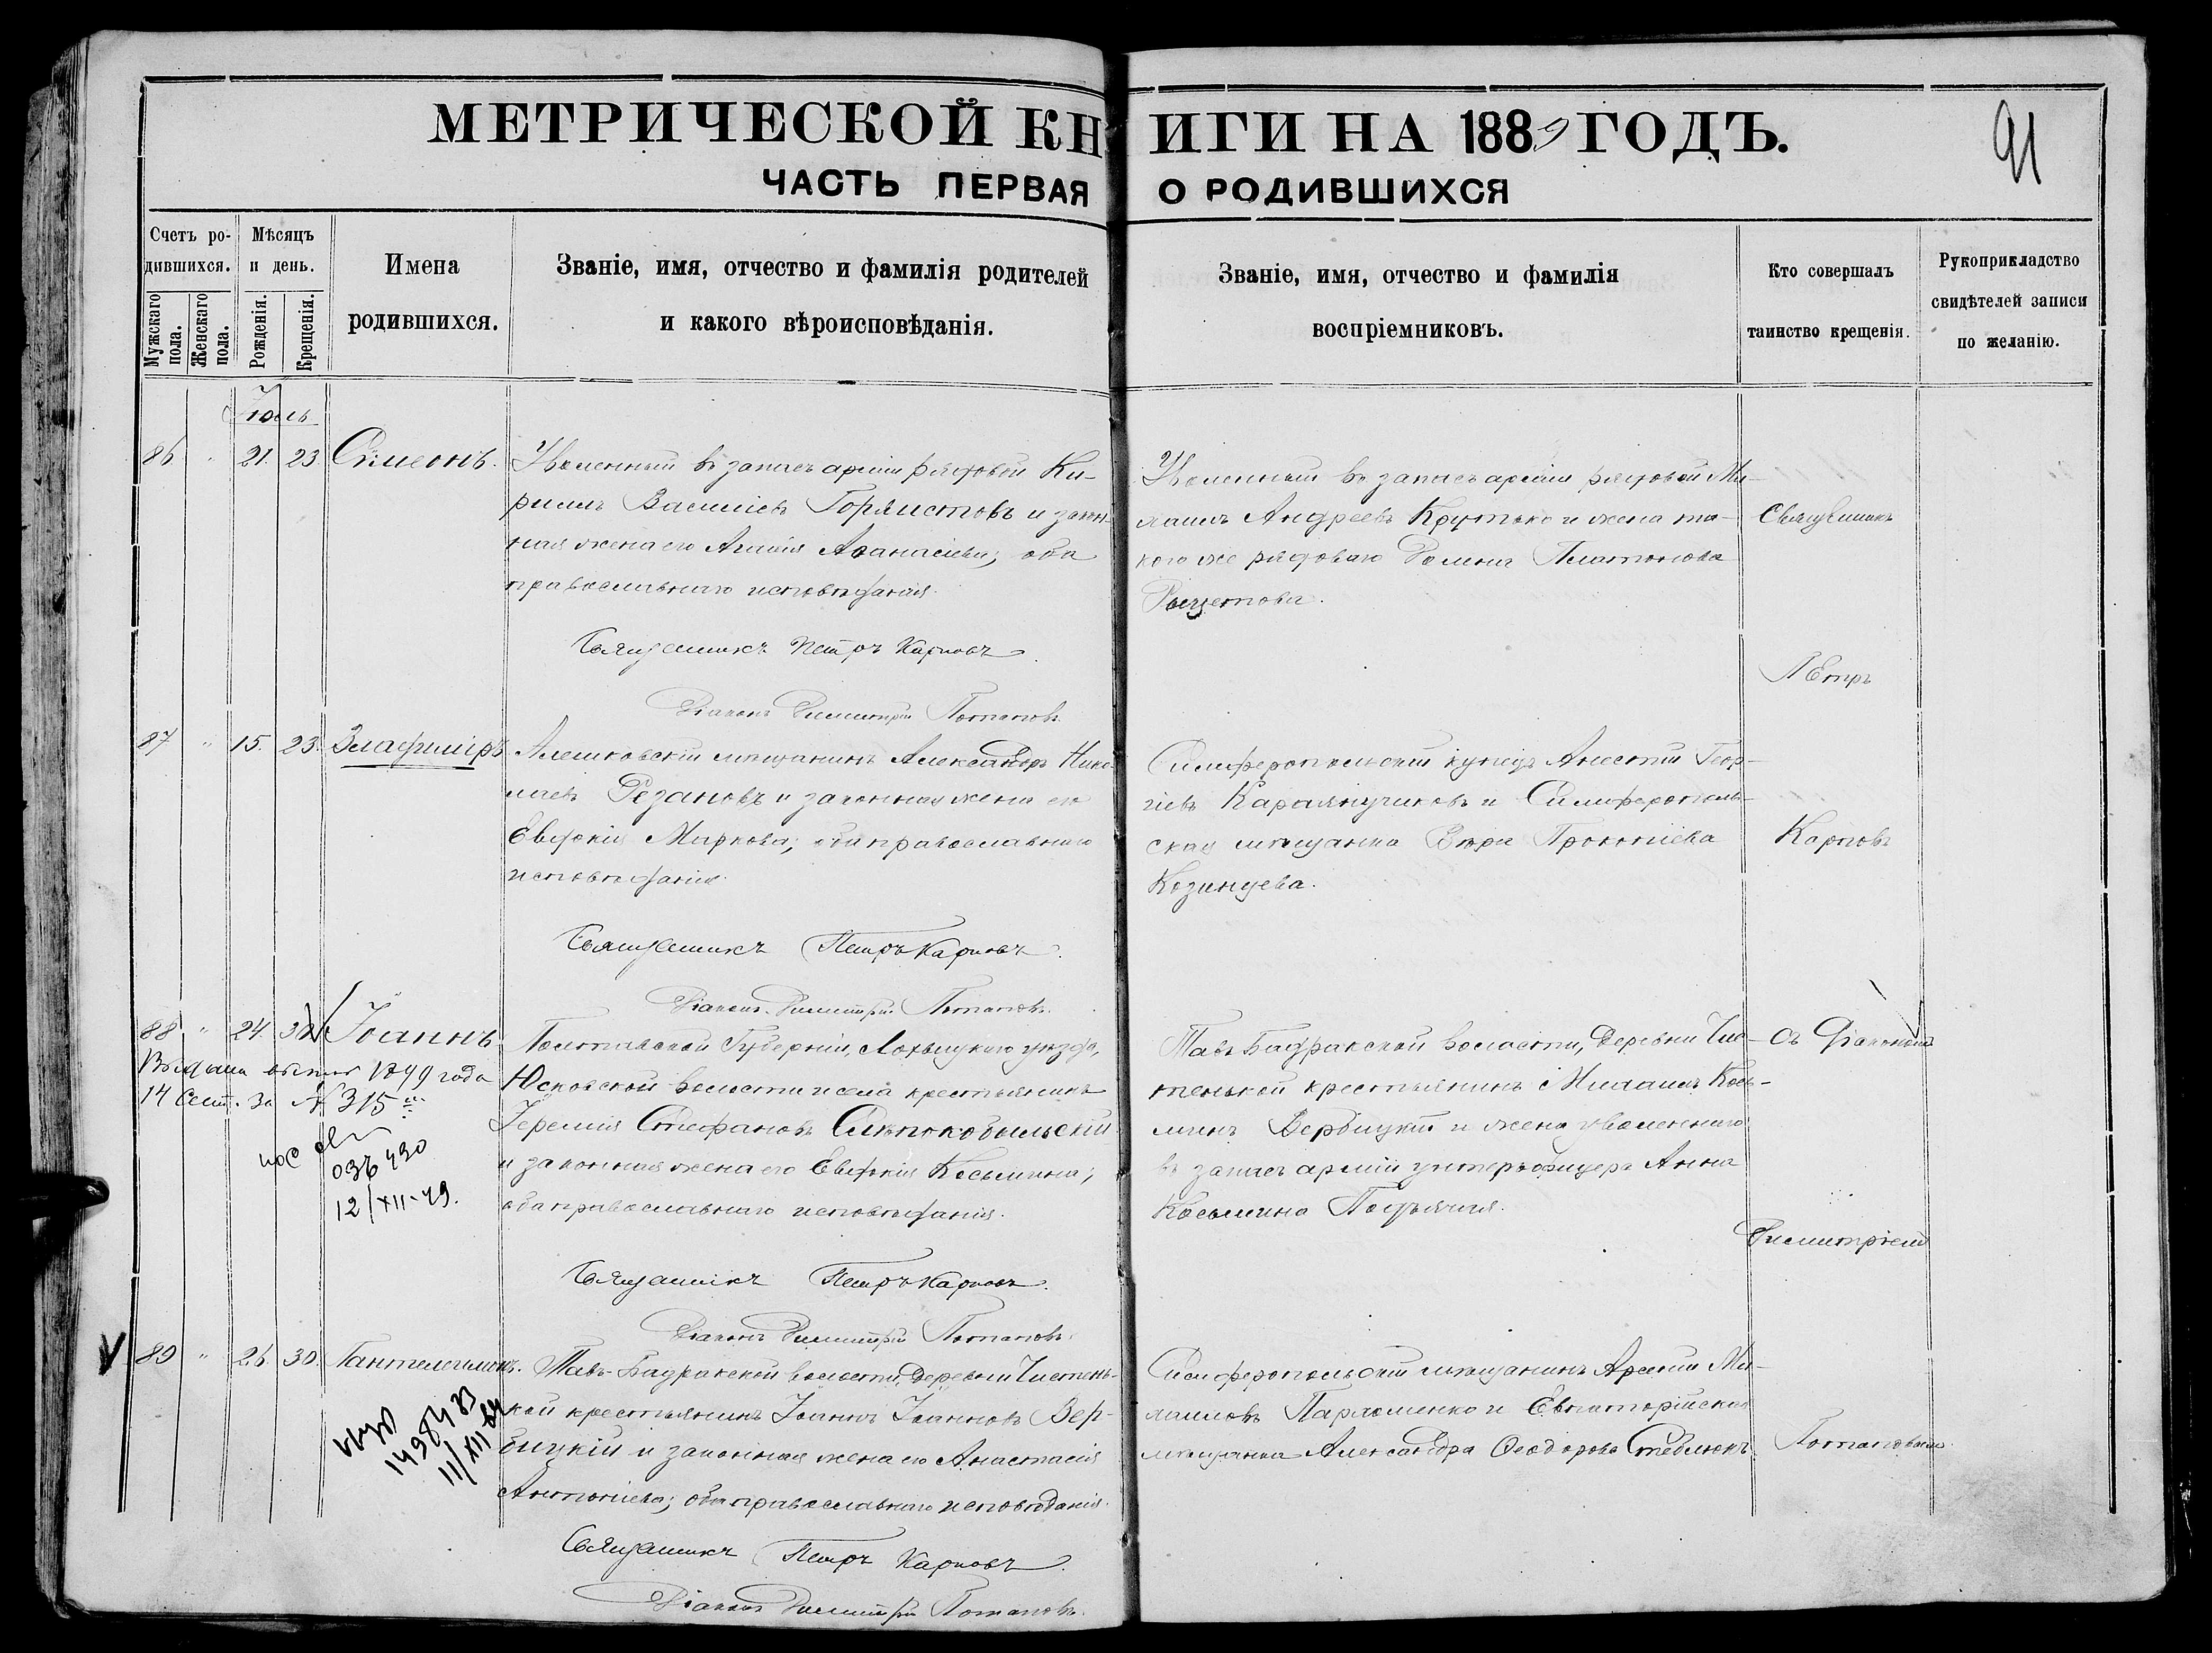 МЕТРИЧЕСКОЙ КНИГИ НА 1889 ГОДЪ.
91
ЧАСТЬ ПЕРВАЯ О РОДИВШИХСЯ
Счетъ ро-
дившихся.
Мужскаго пола.
Женскаго пола.
Мѣсяцъ
и день.
Рожденія.
Крещенія.
Имена
родившихся.
Званіе, имя, отчество и фамилія родителей
и какого вѣроисповѣданія.
Званіе, имя, отчество и фамилія
воспріемниковъ.
Кто совершалъ
таинство крещенія.
Рукоприкладство
свидѣтелей записи
по желанію.
Іюль
86 " 21. 23 Симеонъ.
Уволенный въ запасъ арміи рядовой Ки-
риллъ Василіевъ Горлистовъ и закон-
ная жена его Агаѳія Аѳанасіева; оба
православнаго исповѣданія.
Священникъ Петръ Карповъ
Діаконъ Димитрій Потаповъ.
Уволенный въ запасъ арміи рядовой Ми-
хаилъ Андреевъ Крутько и жена та-
кого же рядоваго Домна Платонова
Священникъ
Петръ
87 " 15. 23. Владиміръ
Алешковскій мѣщанинъ Александръ Нико-
лаевъ Резановъ и законная жена его
Евдокія Маркова; оба православнаго
исповѣданія.
Священникъ Петръ Карповъ.
Діаконъ Димитрій Потаповъ.
Симферопольскій купецъ Анестій Геор-
гіевъ и Симферополь-
ская мѣщанка Вѣра Прокопіева
Козинцева.
Карповъ
88 " 24. 30 Іоаннъ
Выдана 1899 года
14 Сент. за № 315
036430
12/XII-49.
Полтавской Губерніи, Лохвицкаго уѣзда,
Юсковской волости и села крестьянинъ
Іеремія Стефановъ Синѣкобыльскій
и законная жена его Евдокія Косьмина;
оба православнаго исповѣданія.
Священникъ Петръ Карповъ.
Діаконъ Димитрій Потаповъ.
Тавъ-Бадракской волости, деревни Чис-
тенькой крестьянинъ Михаилъ Кось-
минъ Вербицкій и жена уволеннаго
въ запасъ арміи унтеръ-офицера Анна
Косьмина
Съ Діакономъ
Димитріемъ
89 " 26. 30. Пантелеимонъ.
149843
Тавъ-Бадракской волости, деревни Чистень-
кой крестьянинъ Іоаннъ Іоанновъ Вер-
бицкій и законная жена его Анастасія
Антоніева; оба православнаго исповѣданія.
Священникъ Петръ Карповъ.
Діаконъ Димитрій Потаповъ.
Симферопольскій мѣщанинъ Арсеній Ми-
хаиловъ Пархоменко и Евпаторійская
мѣщанка Александра Ѳеодорова Стеблюкъ.
Потаповымъ.